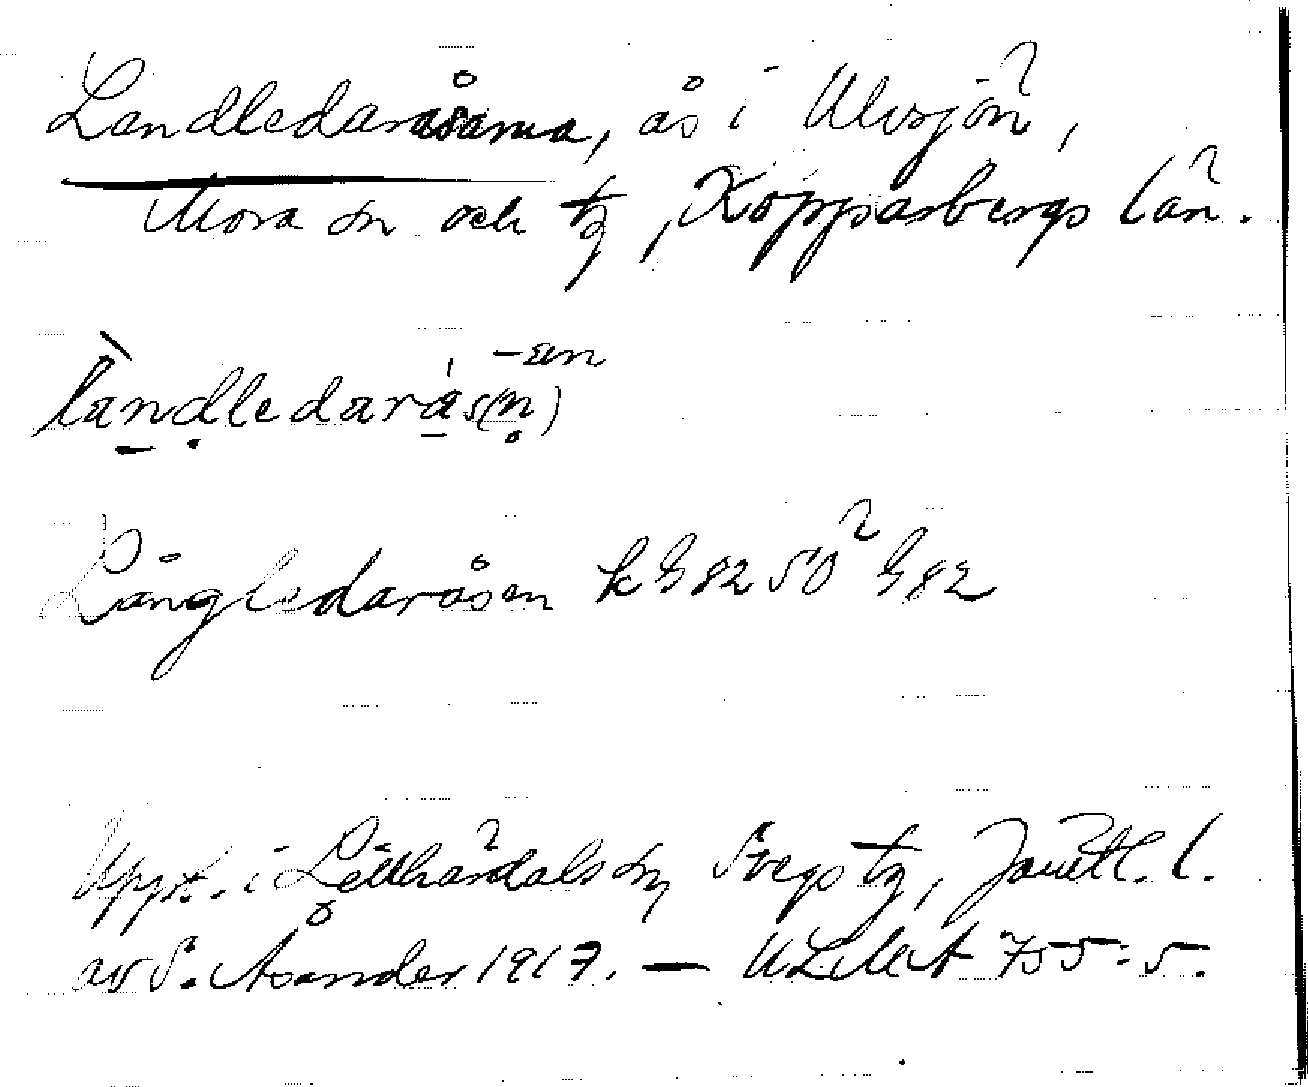 Landledaråsarna, ås i Ulvsjön,
Mora sn och tg, Kopparbergs län.
landledarås(n) -æn
Långledaråsen kh 82 SO h 82
Uppt. i Lillhärdals sn, Svegs tg, Jämtl. l.
av S. Åsander 1917. — ULMA 755:5.